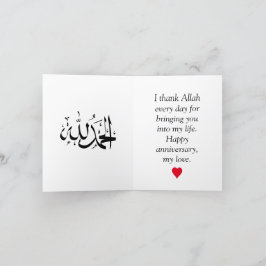 الحمد لله
I thank Allah
every day for
bringing you
into my life.
Happy
anniversary,
my love.